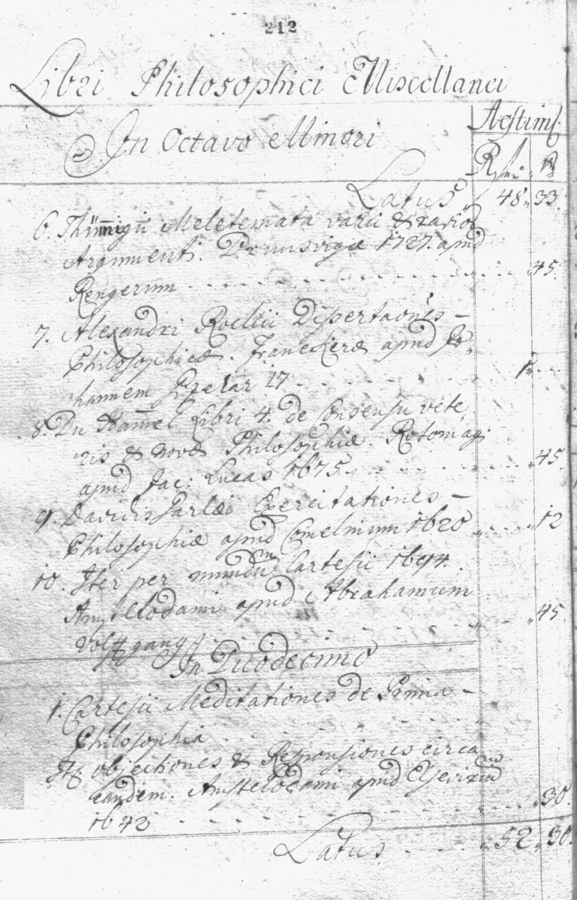 212
Libri Philosophici Miscellanei
In Octavo Minori
Aestim:
R
Latus 48 33
6. Thümigii Meletemata varii & rarior
Argumenti. Brunsvigæ 1727. apud
Rengerum 45
7. Alexandri Roellii Dissertaones
Philosophicæ. Franekeræ apud Jo-
hannem Gyzelar 17 1
8. Du Hamel Libri 4. de Consensu vete
ris & novæ Philosophiæ. Rotomagi
apud Jac: Lucas 1675. 45
9. Davidis Paræi Exercitationes
Philosophiæ apud Comelinum 1620 12
10. Iter per mundum Cartesii 1694.
Amstelodami apud Abrahamum
Wolfgang 45
In Duodecimo
1. Cartesii Meditationes de Prima
Philosophia
It objectiones & Responsiones circa
eandem. Amstelodami apud Elzevirium
1642 30
Latus 52 30